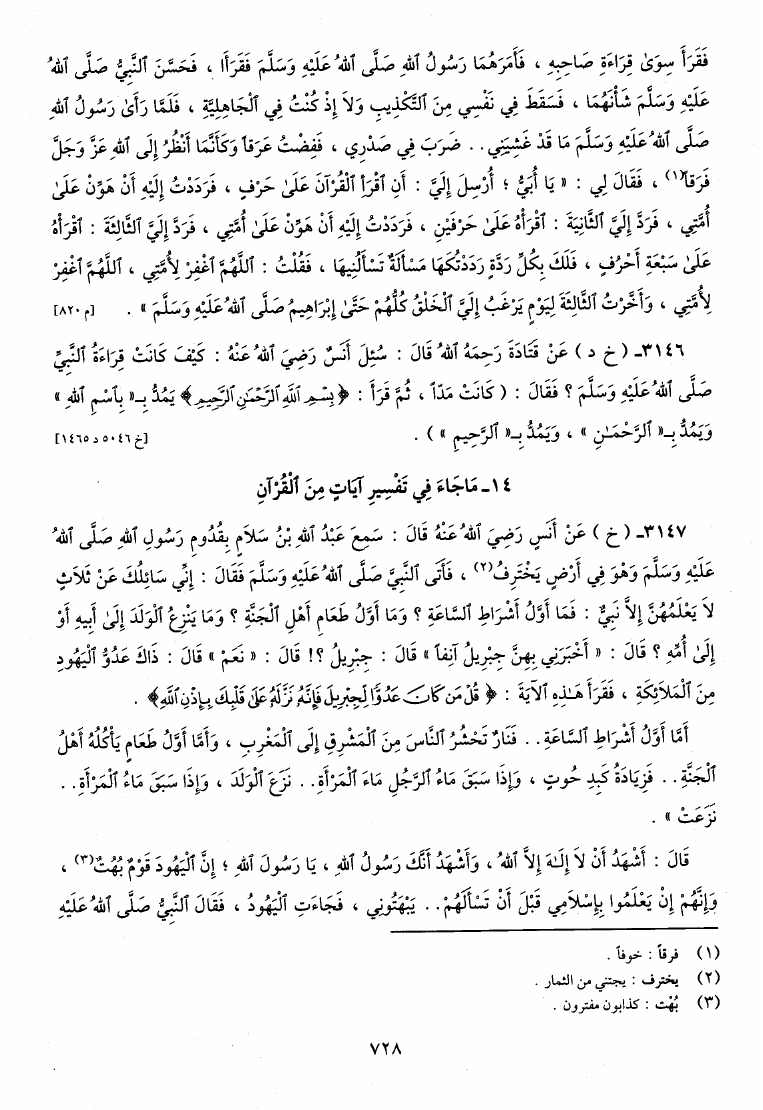 فَقَرَأَ سِوَىٰ قِرَاءَةِ صَاحِبِهِ ، فَأَمَرَهُمَا رَسُولُ ٱللهِ صَلَّى ٱللهُ عَلَيْهِ وَسَلَّمَ فَقَرَأَا ، فَحَسَّنَ ٱلنَّبِيُّ صَلَّى ٱللهُ
عَلَيْهِ وَسَلَّمَ شَأْنَهُمَا ، فَسَقَطَ فِي نَفْسِي مِنَ ٱلتَّكْذِيبِ وَلاَ إِذْ كُنْتُ فِي ٱلْجَاهِلِيَّةِ ، فَلَمَّا رَأَىٰ رَسُولُ ٱللهِ
صَلَّى ٱللهُ عَلَيْهِ وَسَلَّمَ مَا قَدْ غَشِيَنِي . . ضَرَبَ فِي صَدْرِي ، فَفِضْتُ عَرَقاً وَكَأَنَّمَا أَنْظُرُ إِلَى ٱللهِ عَزَّ وَجَلَّ
فَرَقاً(١) ، فَقَالَ لِي : « يَا أُبَيُّ ؛ أُرْسِلَ إِلَيَّ : أَنِ ٱقْرَأِ ٱلْقُرْآنَ عَلَىٰ حَرْفٍ ، فَرَدَدْتُ إِلَيْهِ أَنْ هَوِّنْ عَلَىٰ
أُمَّتِي ، فَرَدَّ إِلَيَّ ٱلثَّانِيَةَ : ٱقْرَأْهُ عَلَىٰ حَرْفَيْنِ ، فَرَدَدْتُ إِلَيْهِ أَنْ هَوِّنْ عَلَىٰ أُمَّتِي ، فَرَدَّ إِلَيَّ ٱلثَّالِثَةَ : ٱقْرَأْهُ
عَلَىٰ سَبْعَةِ أَحْرُفٍ ، فَلَكَ بِكُلِّ رَدَّةٍ رَدَدْتُكَهَا مَسْأَلَةٌ تَسْأَلُنِيهَا ، فَقُلْتُ : ٱللَّهُمَّ ٱغْفِرْ لِأُمَّتِي ، ٱللَّهُمَّ ٱغْفِرْ
لِأُمَّتِي ، وَأَخَّرْتُ ٱلثَّالِثَةَ لِيَوْمٍ يَرْغَبُ إِلَيَّ ٱلْخَلْقُ كُلُّهُمْ حَتَّىٰ إِبْرَاهِيمُ صَلَّى ٱللهُ عَلَيْهِ وَسَلَّمَ » . [م ٨٢٠]
٣١٤٦ـ ( خ د ) عَنْ قَتَادَةَ رَحِمَهُ ٱللهُ قَالَ : سُئِلَ أَنَسٌ رَضِيَ ٱللهُ عَنْهُ : كَيْفَ كَانَتْ قِرَاءَةُ ٱلنَّبِيِّ
صَلَّى ٱللهُ عَلَيْهِ وَسَلَّمَ ؟ فَقَالَ : ( كَانَتْ مَدّاً ، ثُمَّ قَرَأَ : ﴿بِسْمِ ٱللَّهِ ٱلرَّحْمَٰنِ ٱلرَّحِيمِ﴾ يَمُدُّ بِـ« بِٱسْمِ ٱللهِ »
وَيَمُدُّ بِـ« ٱلرَّحْمَـٰنِ » ، وَيَمُدُّ بِـ« ٱلرَّحِيمِ » ) . [خ ٥٠٤٦ د ١٤٦٥]
١٤ـ مَا جَاءَ فِي تَفْسِيرِ آيَاتٍ مِنَ ٱلْقُرْآنِ
٣١٤٧ـ ( خ ) عَنْ أَنَسٍ رَضِيَ ٱللهُ عَنْهُ قَالَ : سَمِعَ عَبْدُ ٱللهِ بْنُ سَلاَمٍ بِقُدُومِ رَسُولِ ٱللهِ صَلَّى ٱللهُ
عَلَيْهِ وَسَلَّمَ وَهْوَ فِي أَرْضٍ يَخْتَرِفُ(٢) ، فَأَتَى ٱلنَّبِيَّ صَلَّى ٱللهُ عَلَيْهِ وَسَلَّمَ فَقَالَ : إِنِّي سَائِلُكَ عَنْ ثَلاَثٍ
لاَ يَعْلَمُهُنَّ إِلاَّ نَبِيٌّ : فَمَا أَوَّلُ أَشْرَاطِ ٱلسَّاعَةِ ؟ وَمَا أَوَّلُ طَعَامِ أَهْلِ ٱلْجَنَّةِ ؟ وَمَا يَنْزِعُ ٱلْوَلَدَ إِلَىٰ أَبِيهِ أَوْ
إِلَىٰ أُمِّهِ ؟ قَالَ : « أَخْبَرَنِي بِهِنَّ جِبْرِيلُ آنِفاً » قَالَ : جِبْرِيلُ ؟! قَالَ : « نَعَمْ » قَالَ : ذَاكَ عَدُوُّ ٱلْيَهُودِ
مِنَ ٱلْمَلاَئِكَةِ ، فَقَرَأَ هَـٰذِهِ ٱلآيَةَ : ﴿ قُلْ مَن كَانَ عَدُوًّا لِّجِبْرِيلَ فَإِنَّهُ نَزَّلَهُ عَلَىٰ قَلْبِكَ بِإِذْنِ ٱللَّهِ﴾ .
أَمَّا أَوَّلُ أَشْرَاطِ ٱلسَّاعَةِ . . فَنَارٌ تَحْشُرُ ٱلنَّاسَ مِنَ ٱلْمَشْرِقِ إِلَى ٱلْمَغْرِبِ ، وَأَمَّا أَوَّلُ طَعَامٍ يَأْكُلُهُ أَهْلُ
ٱلْجَنَّةِ . . فَزِيَادَةُ كَبِدِ حُوتٍ ، وَإِذَا سَبَقَ مَاءُ ٱلرَّجُلِ مَاءَ ٱلْمَرْأَةِ . . نَزَعَ ٱلْوَلَدَ ، وَإِذَا سَبَقَ مَاءُ ٱلْمَرْأَةِ . .
نَزَعَتْ » .
قَالَ : أَشْهَدُ أَنْ لاَ إِلَـٰهَ إِلاَّ ٱللهُ ، وَأَشْهَدُ أَنَّكَ رَسُولُ ٱللهِ ، يَا رَسُولَ ٱللهِ ؛ إِنَّ ٱلْيَهُودَ قَوْمٌ بُهْتٌ(٣) ،
وَإِنَّهُمْ إِنْ يَعْلَمُوا بِإِسْلاَمِي قَبْلَ أَنْ تَسْأَلَهُمْ . . يَبْهَتُونِي ، فَجَاءَتِ ٱلْيَهُودُ ، فَقَالَ ٱلنَّبِيُّ صَلَّى ٱللهُ عَلَيْهِ
(١) فرقاً : خوفاً .
(٢) يخترف : يجتني من الثمار .
(٣) بُهْت : كذابون مفترون .
٧٢٨